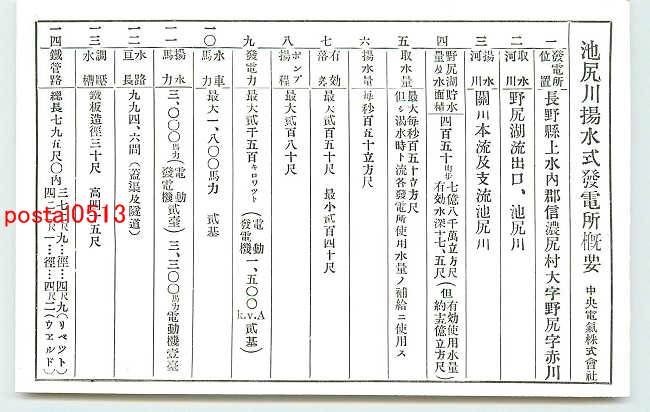 池尻川揚水式發電所概要 中央電氣株式會社
一 發電所位置 長野縣上水內郡信濃尻村大字野尻字赤川
二 取水河川 野尻湖流出口、池尻川
三 揚水河川 關川本流及支流池尻川
四 野尻湖貯水量及水面積 四百五十町步 七億八千萬立方尺 有効水深十七、五尺(但有効使用水量約壹億立方尺)
五 取水量 最大每秒百五十立方尺 但シ渴水時下流各發電所使用水量ノ補給ニ使用ス
六 揚水量 每秒百五十立方尺
七 有効落差 最大貳百五十尺 最小貳百四十尺
八 ポンプ揚程 最大貳百八十尺
九 發電力 最大貳千五百キロワット(電動發電機 一、五〇〇k.v.A 貳基)
一〇 水車馬力 最大一、八〇〇馬力 貳基
一一 揚水馬力 三、〇〇〇馬力(電動發電機貳臺) 三、三〇〇馬力電動機壹臺
一二 水路亘長 九九四、六間(蓋渠及隧道)
一三 調壓水槽 鐵板造徑三十尺 高四十五尺
一四 鐵管路 總長七九五尺〇內 三七四尺九一徑…四尺九(リベット) 四二〇尺一徑…四尺二(ウェルド)
posta0513